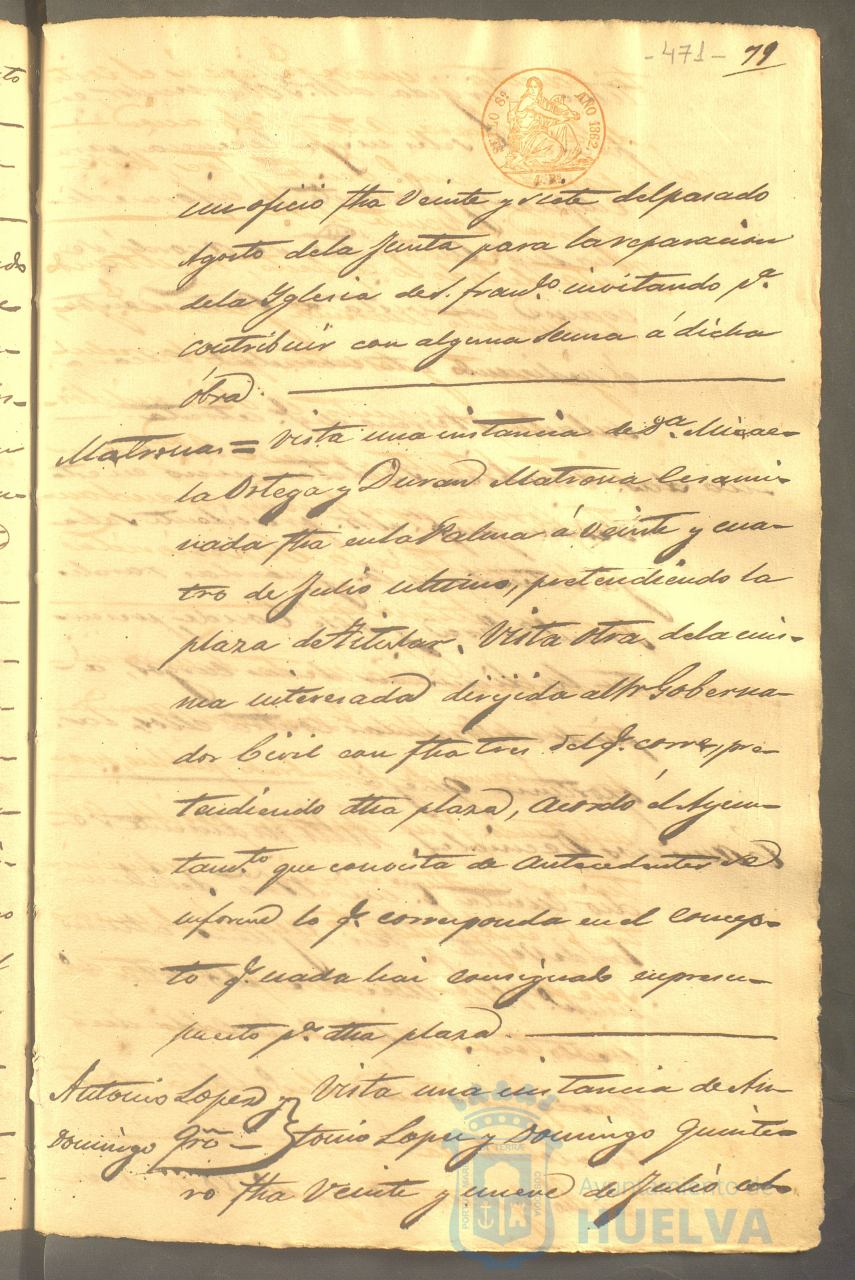 -471- 79
SELLO 8º AÑO 1862.
un oficio fha Veinte y siete del pasado
Agosto dela Junta para la reparacion
dela Yglesia de S. franco. invitando pª
contribuir con alguna suma á dicha
óbra.
Matronas = Vista una instancia de Dª. Micae-
la Ortega y Duran Matrona Ecsami-
nada fha en la Palma á Veinte y cua-
tro de Julio ultimo, pretendiendo la
plaza de Titular. Vista otra dela mis-
ma interesada dirijida al Sr Goberna-
dor Civil con fha tres del q. corre, pre-
tendiendo dha plaza, acordó el Ayun-
tamto. que con vista de antecedentes se
informe lo q. corresponda en el concep-
to q. nada hai consignado en presu-
puesto pª. dha plaza.
Antonio Lopez y Vista una instancia de An-
Domingo Qro̅ tonio Lopez y Domingo Quinte-
ro fha Veinte y nueve de Julio
Ayuntamiento de
HUELVA